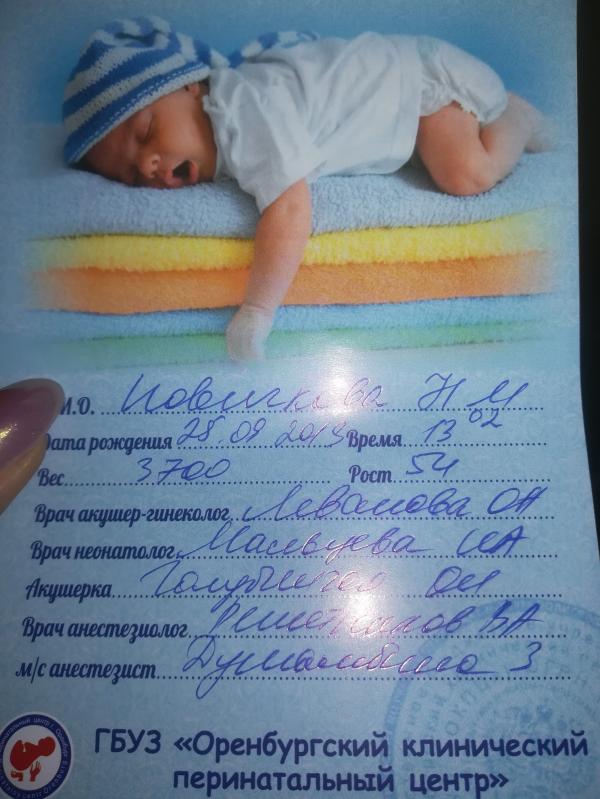 И.О. Новичкова Н И
Дата рождения 28.09 2013 Время 13 02
Вес 3700 Рост 54
Врач акушер-гинеколог Леванова ОА
Врач неонатолог Мальцева ИА
Акушерка ОИ
Врач анестезиолог Решетников ВА
м/с анестезист З
ГБУЗ «Оренбургский клинический
перинатальный центр»